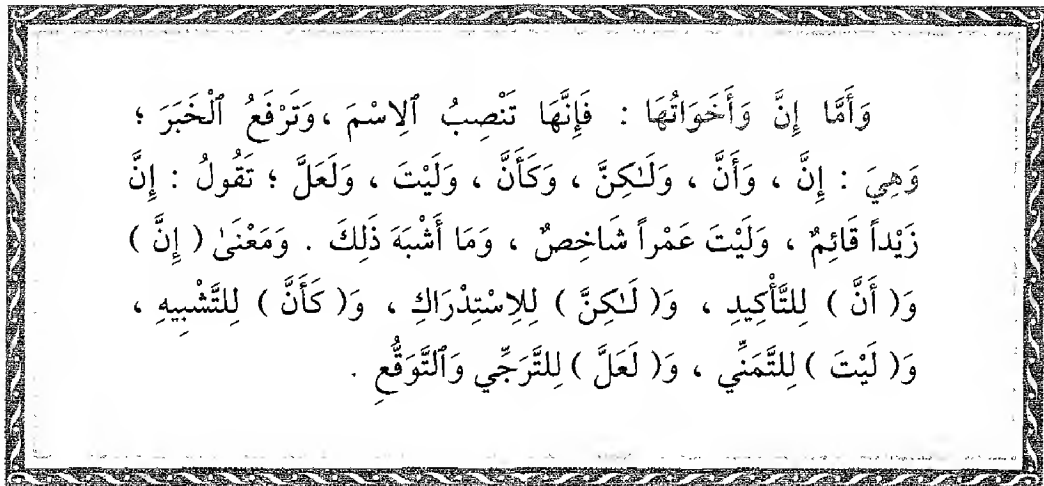 وَأَمَّا إِنَّ وَأَخَوَاتُهَا : فَإِنَّهَا تَنْصِبُ ٱلِاسْمَ ،وَتَرْفَعُ ٱلْخَبَرَ ؛
وَهِيَ : إِنَّ ، وَأَنَّ ، وَلَـٰكِنَّ ، وَكَأَنَّ ، وَلَيْتَ ، وَلَعَلَّ ؛ تَقُولُ : إِنَّ
زَيْداً قَائِمٌ ، وَلَيْتَ عَمْراً شَاخِصٌ ، وَمَا أَشْبَهَ ذَلِكَ . وَمَعْنَىٰ ( إِنَّ )
وَ( أَنَّ ) لِلتَّأْكِيدِ ، وَ( لَـٰكِنَّ ) لِلِاسْتِدْرَاكِ ، وَ( كَأَنَّ ) لِلتَّشْبِيهِ ،
وَ( لَيْتَ ) لِلتَّمَنِّي ، وَ( لَعَلَّ ) لِلتَّرَجِّي وَٱلتَّوَقُّعِ .